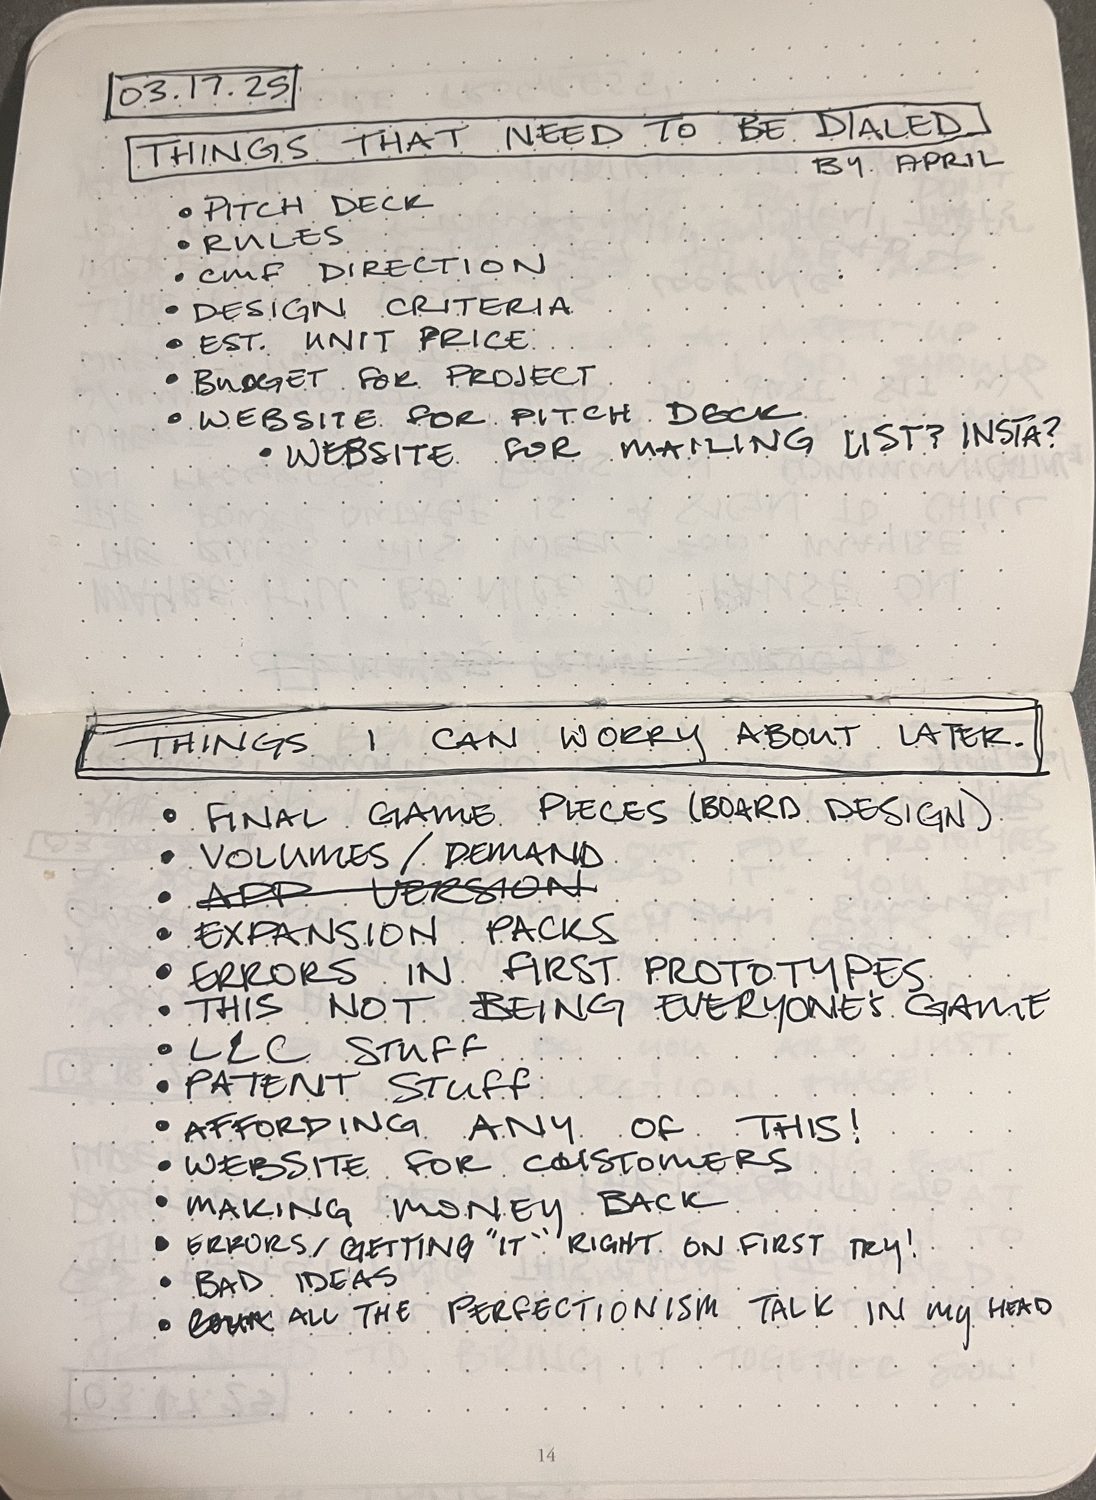 03.17.25
THINGS THAT NEED TO BE DIALED
BY APRIL
• PITCH DECK
• RULES
• CMF DIRECTION
• DESIGN CRITERIA
• EST. UNIT PRICE
• BUDGET FOR PROJECT
• WEBSITE FOR PITCH DECK
• WEBSITE FOR MAILING LIST? INSTA?
THINGS I CAN WORRY ABOUT LATER.
• FINAL GAME PIECES (BOARD DESIGN)
• VOLUMES / DEMAND
• APP VERSION
• EXPANSION PACKS
• ERRORS IN FIRST PROTOTYPES
• THIS NOT BEING EVERYONE'S GAME
• LLC STUFF
• PATENT STUFF
• AFFORDING ANY OF THIS!
• WEBSITE FOR CUSTOMERS
• MAKING MONEY BACK
• ERRORS / GETTING "IT" RIGHT ON FIRST TRY!
• BAD IDEAS
• ALL THE PERFECTIONISM TALK IN MY HEAD
14